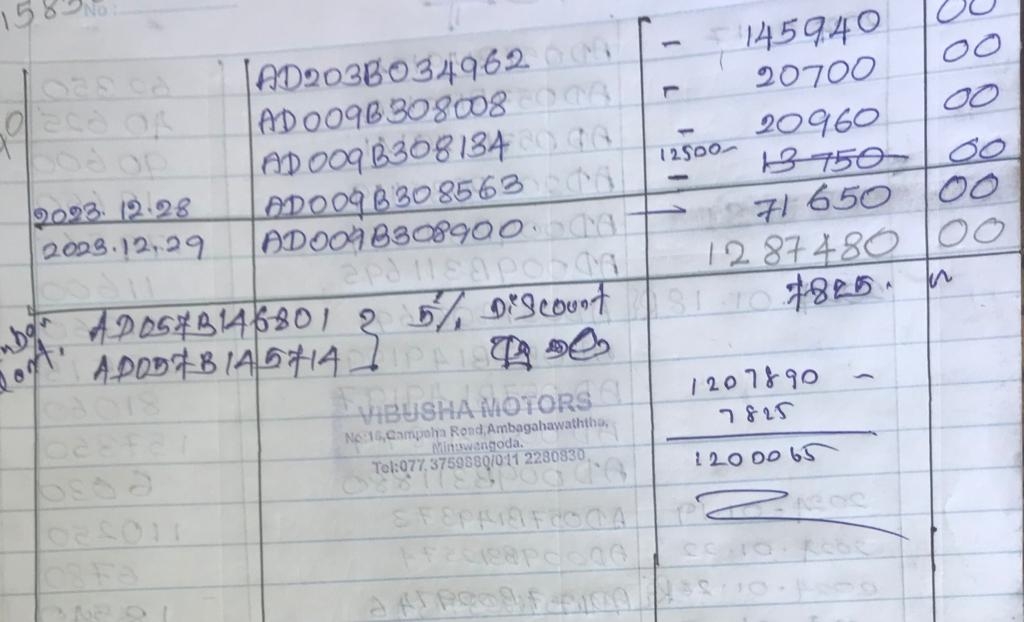 No:
AD203B034962 - 145940 00
AD009B308008 - 20700 00
AD009B308134 - 20960 00
2023.12.28 AD009B308563 12500- 13 750 00
2023.12.29 AD009B308900. 71 650 00
1287480 00
AD057B146801 5% Discount 7825.
AD057B145714
1207890 -
7825
1200065
VIBUSHA MOTORS
No:16,Gampaha Road,Ambagahawaththa,
Minuwangoda.
Tel:077 3759880/011 2280830